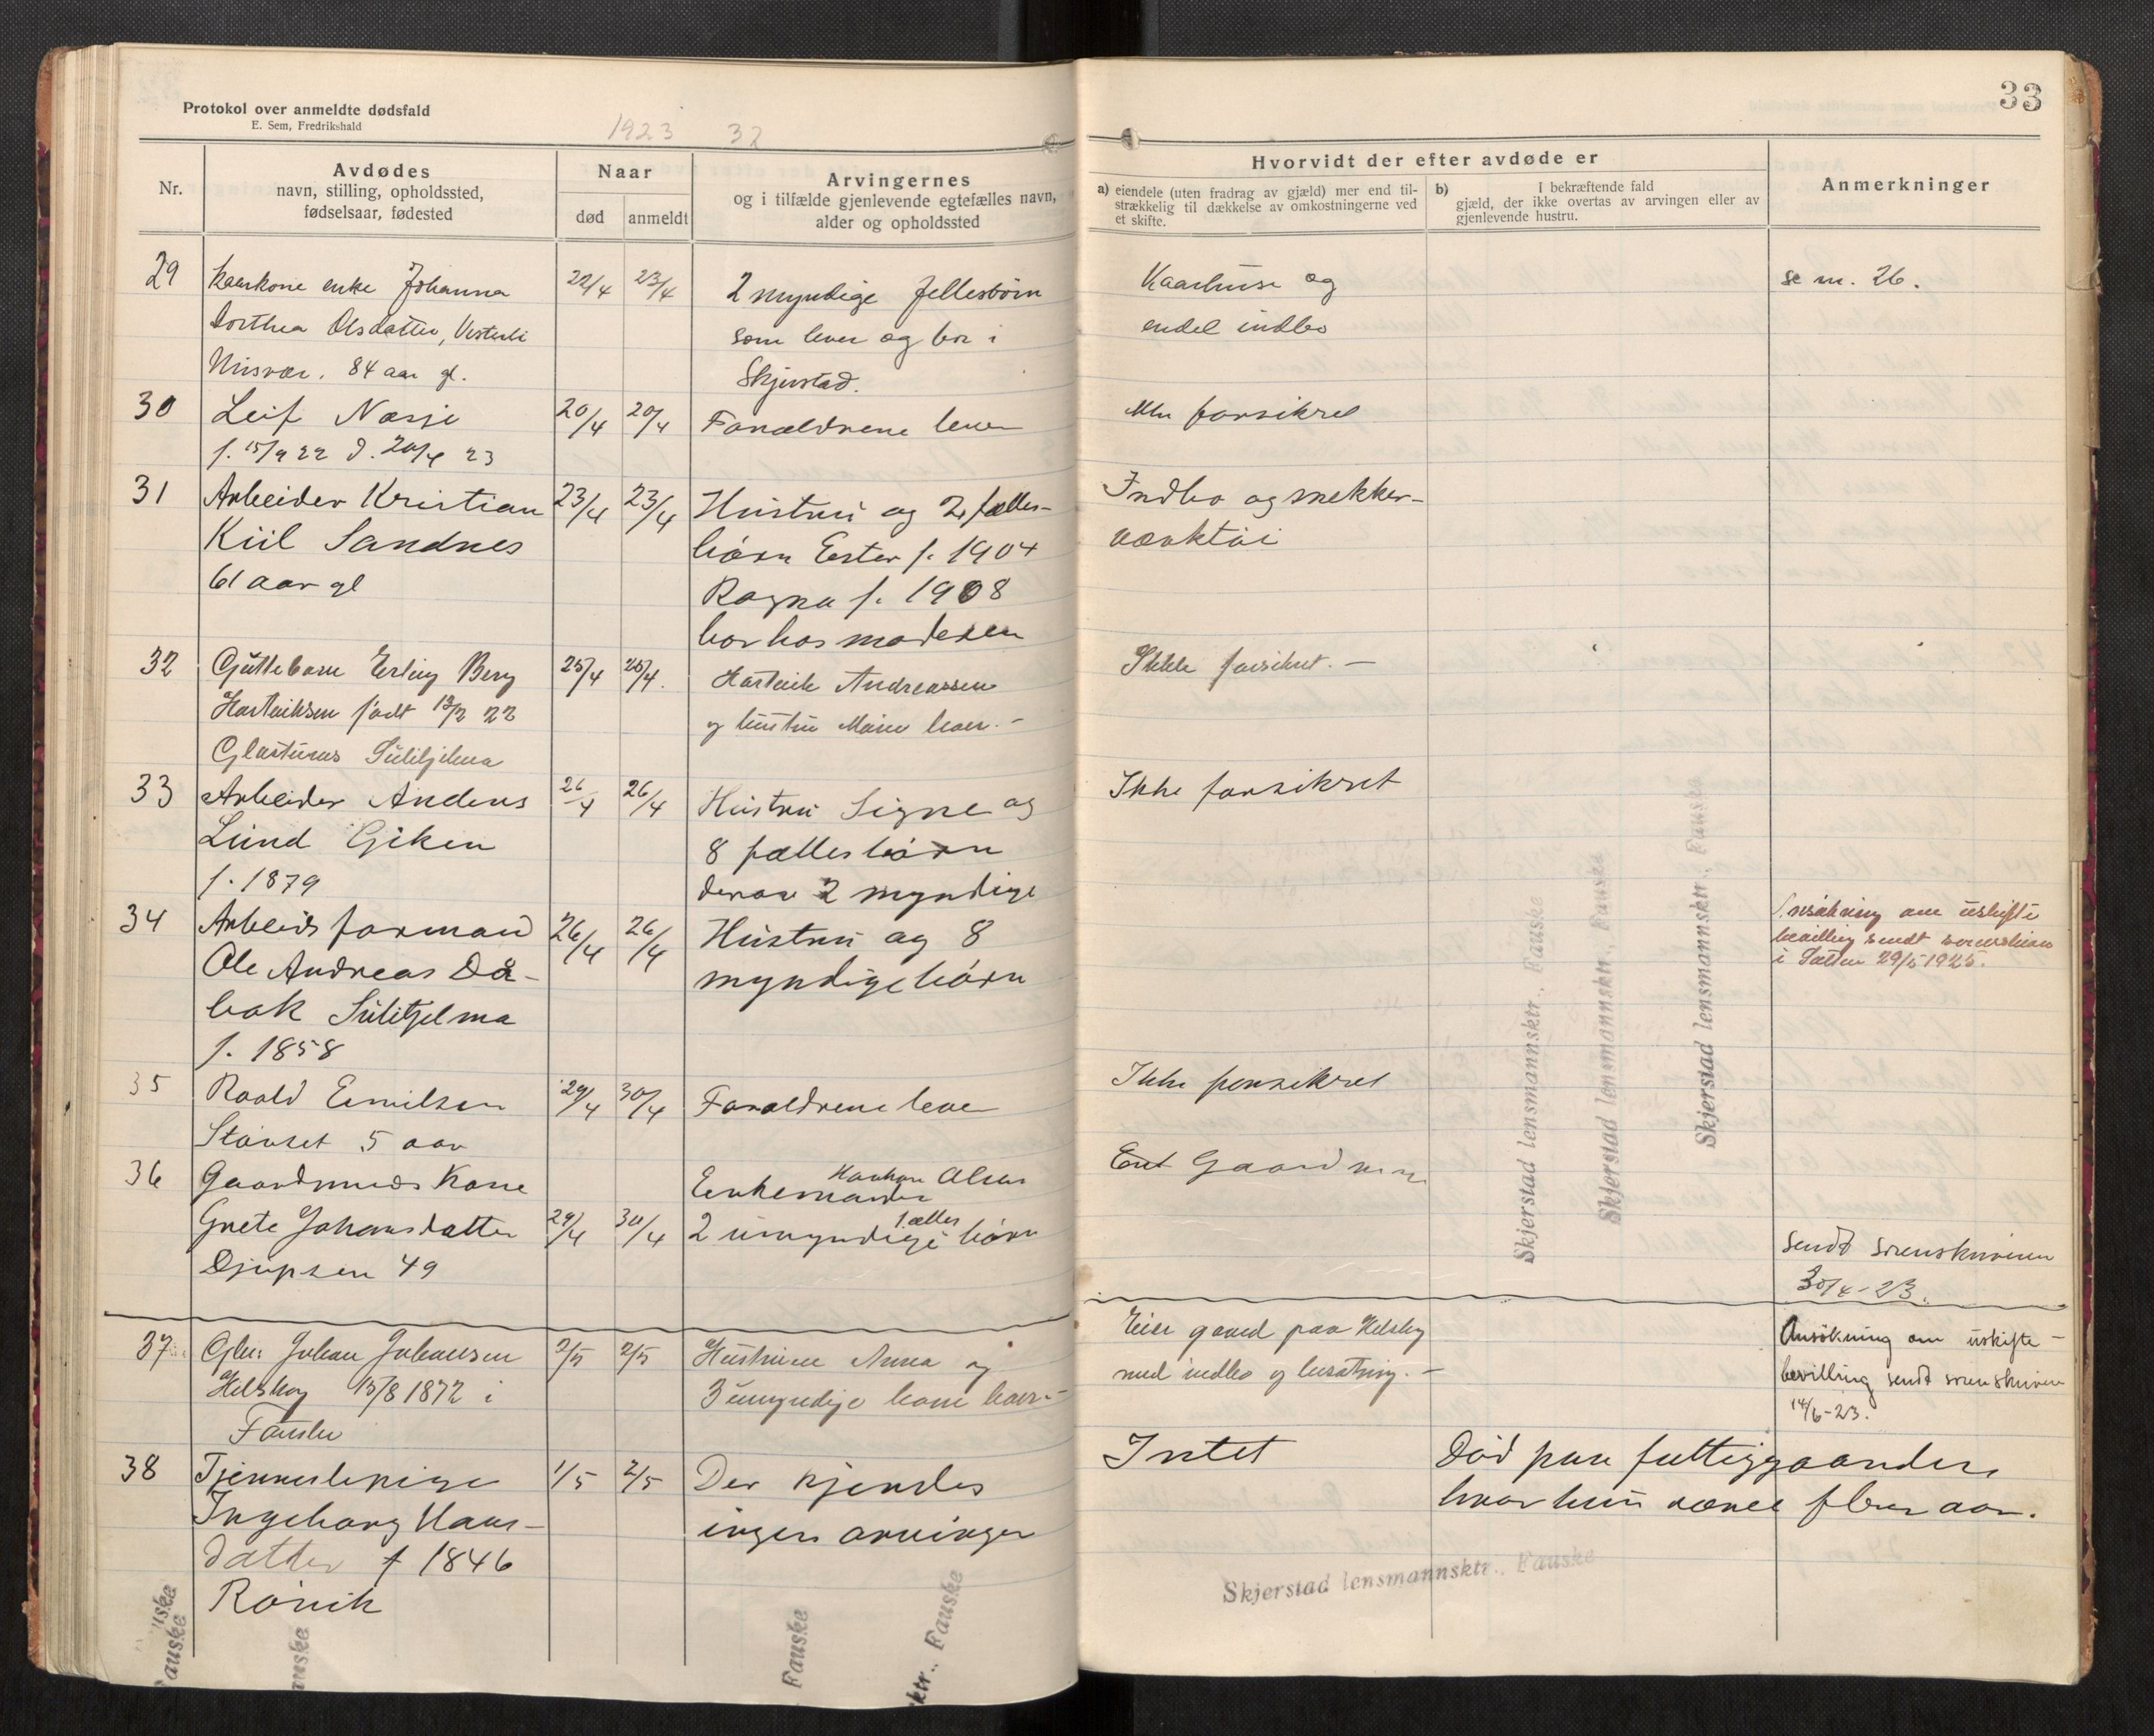 Protokol over anmeldte dødsfald
E. Sem, Fredrikshald
1923 32
Nr.
Avdødes
navn, stilling, opholdssted,
fødselsaar, fødested
Naar
død
anmeldt
Arvingernes
og i tilfælde gjenlevende egtefælles navn,
alder og opholdssted
29
Kaarkone enke Johanna
Dorthea Olsdatter, Vesterli
Misvær. 84 aar gl.
22/4
23/4
2 myndige fellesbørn
som lever og bor i
Skjerstad.
30
Leif Næsje
f. 15/9 22 d. 20/4 23
20/4
20/4
Forældrene lever
31
Arbeider Kristian
Kiil Sandnes
61 aar gl
23/4
23/4
Hustru og 2 fælles-
børn Ester f. 1904
Ragna f. 1908
bor hos moderen
32
Guttebarn Erling Berg
Hartviksen født 13/2 22
Glastunes Sulitjelma
25/4
25/4.
Hartvik Andreassen
og hustru Marie lever. -
33
Arbeider Anders
Lund Giken
f. 1879
26/4
26/4
Hustru Signe og
8 fælles børn
derav 2 myndige
34
Arbeidsformand
Ole Andreas Då-
bak Sulitjelma
f. 1858
26/4
26/4
Hustru og 8
myndige børn
35
Roald Emilsen
Storset 5 aar
29/4
30/4
Forældrene lever
36
Gaardmands Kone
Grete Johansdatter
Djupsen 49
29/4
30/4
Enkemanden Haakon Olsen
2 umyndige fælles børn
37
Gbr. Johan Johansen
Helskog 15/8 1872 i
Fauske
2/5
2/5
Hustruen Anna og
3 umyndige barn lever. -
38
Tjenestepige
Ingeborg Hans-
datter f 1846
Røvik
1/5
2/5
Der kjendes
ingen arvinger
Fauske
33
Hvorvidt der efter avdøde er
a) eiendele (uten fradrag av gjæld) mer end til-
strækkelig til dækkelse av omkostningerne ved
et skifte.
b) I bekræftende fald
gjæld, der ikke overtas av arvingen eller av
gjenlevende hustru.
Anmerkninger
Kaarhuse og
endel indbo
se nr. 26.
forsikret
Indbo og snekker-
værktøi
Ikke forsikret. -
Ikke forsikret
Ansøkning om uskifte
bevilling sendt sorenskriven
i Salten 29/5 1925.
Ikke forsikret
Eiet Gaard
sendt sorenskriveren
30/4-23.
Eier gaard paa Helskog
med indbo og besætning. -
Ansøkning om uskifte-
bevilling sendt sorenskriven
14/6-23.
Intet
Død paa fattiggaarden
hvor hun været flere aar.
Skjerstad lensmannsktr., Fauske
Skjerstad lensmannsktr., Fauske
Skjerstad lensmannsktr., Fauske
Skjerstad lensmannsktr., Fauske